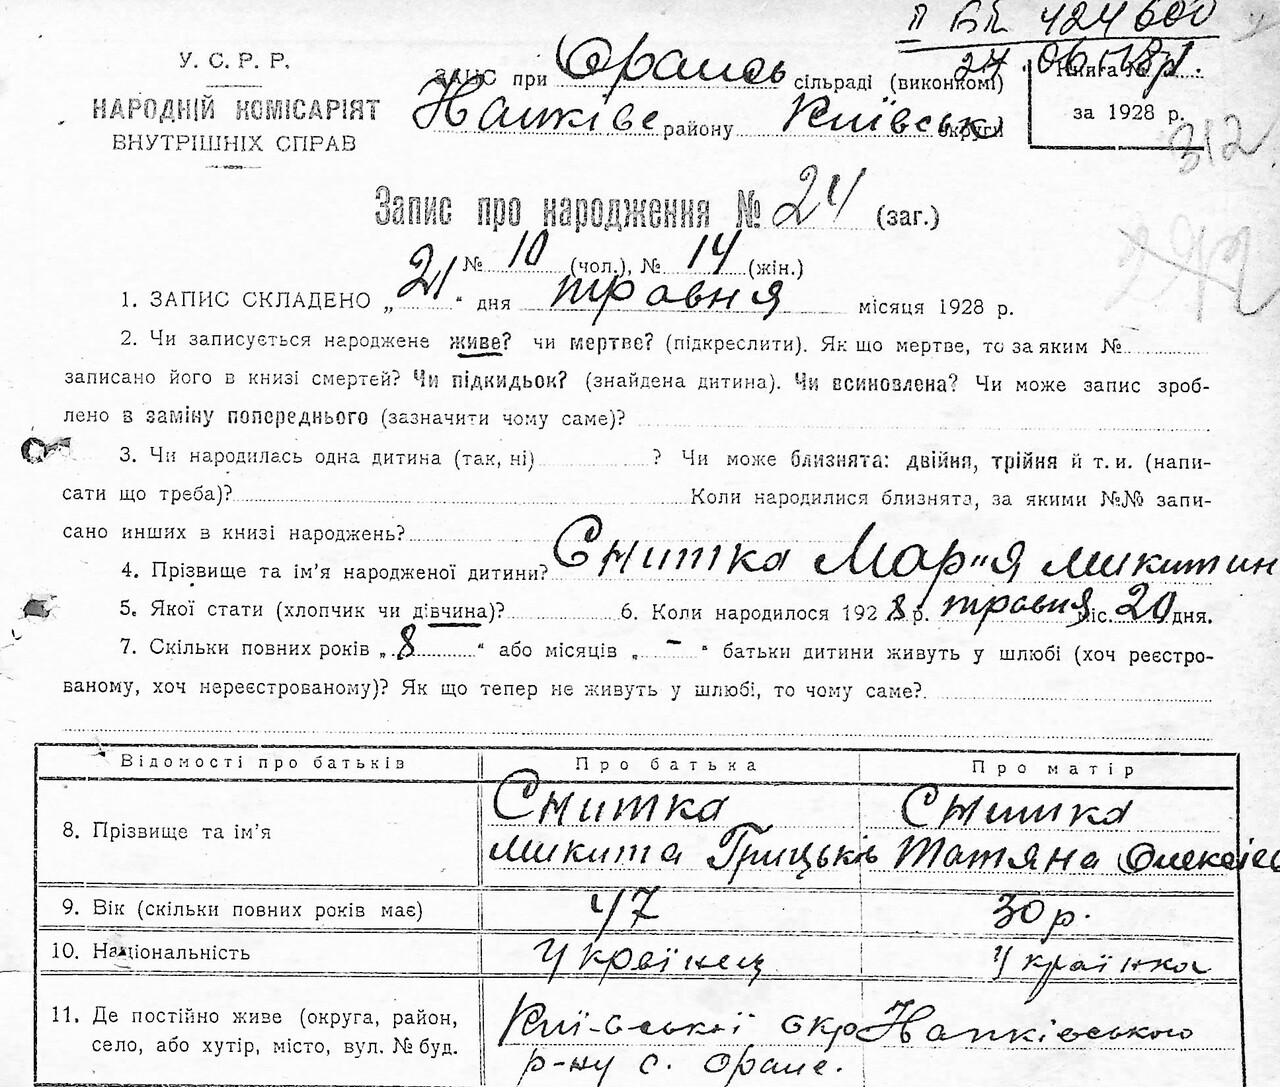 П БК 424600
24.06.1981.
У. С. Р. Р.
НАРОДНІЙ КОМІСАРІЯТ
ВНУТРІШНІХ СПРАВ
ЗАПИС при Орансь сільраді (виконкомі)
Напківс району Київськ округи
Книга №
за 1928 р.
312
Запис про народження № 24 (заг.)
№ 10 (чол.), № 14 (жін.)
1. ЗАПИС СКЛАДЕНО „ 21 “ дня травня місяця 1928 р.
2. Чи записується народжене живе? чи мертве? (підкреслити). Як що мертве, то за яким №
записано його в книзі смертей? Чи підкидьок? (знайдена дитина). Чи всиновлена? Чи може запис зроб-
лено в заміну попереднього (зазначити чому саме)?
3. Чи народилась одна дитина (так, ні) ? Чи може близнята: двійня, трійня й т. и. (напи-
сати що треба)? Коли народилися близнята, за якими №№ запи-
сано инших в книзі народжень?
4. Прізвище та ім’я народженої дитини? Снитка Марія Микитин
5. Якої стати (хлопчик чи дівчина)? 6. Коли народилося 1928 р. травня міс. 20 дня.
7. Скільки повних років „ 8 “ або місяців „ - “ батьки дитини живуть у шлюбі (хоч реєстро-
ваному, хоч нереєстрованому)? Як що тепер не живуть у шлюбі, то чому саме?
Відомості про батьків Про батька Про матір
8. Прізвище та ім’я Снитка Снитка
Микита Грицьків Татяна Олексіє
9. Вік (скільки повних років має) 47 30 р.
10. Національність Українец Українка
11. Де постійно живе (округа, район,
село, або хутір, місто, вул. № буд.
Київської окр Напківського
р-ну с. Оране.